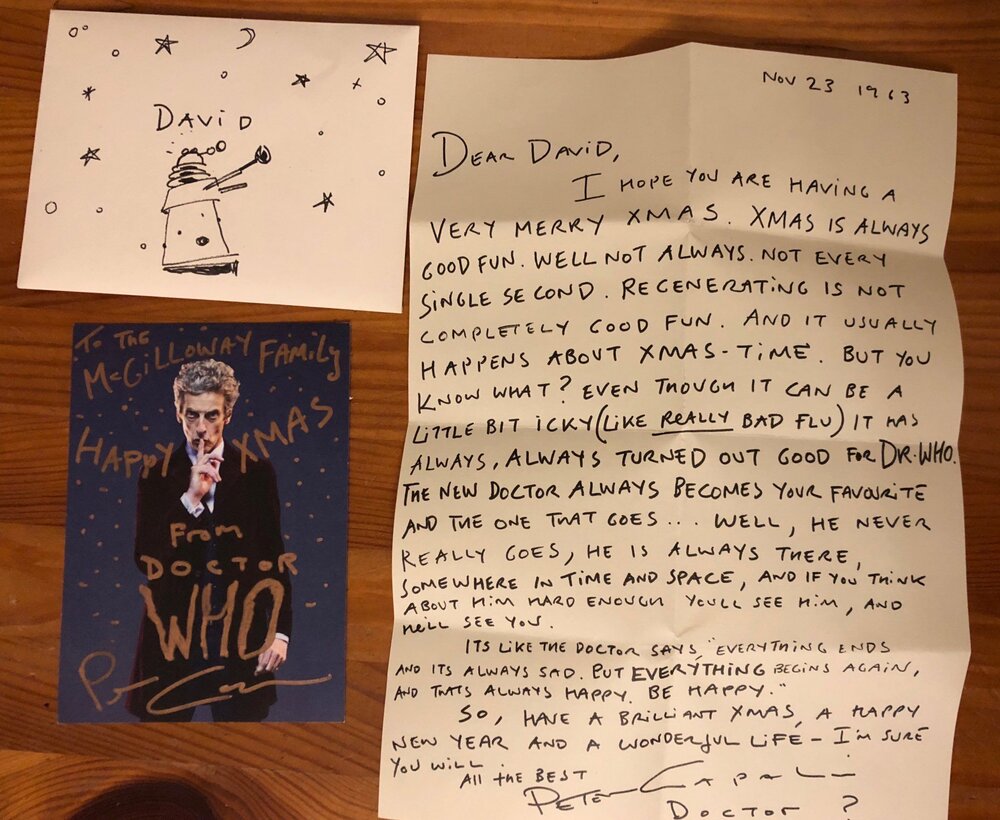 DAViD
TO THE
McGILLOWAY FAMiLy
HAPPy XMAS
From
DOCTOR
WHO
NOV 23 1963
DEAR DAViD,
I HOPE YOU ARE HAVING A
VERY MERRY XMAS. XMAS IS ALWAYS
GOOD FUN. WELL NOT ALWAYS. NOT EVERY
SINGLE SECOND. REGENERATING IS NOT
COMPLETELY GOOD FUN. AND IT USUALLY
HAPPENS ABOUT XMAS-TiME. BUT YOU
KNOW WHAT? EVEN THOUGH IT CAN BE A
LITTLE BIT ICKY (LIKE REALLY BAD FLU) IT HAS
ALWAYS, ALWAYS TURNED OUT GOOD FOR DR.WHO.
THE NEW DOCTOR ALWAYS BECOMES YOUR FAVOURITE
AND THE ONE THAT GOES... WELL, HE NEVER
REALLY GOES, HE IS ALWAYS THERE,
SOMEWHERE IN TIME AND SPACE, AND IF YOU THINK
ABOUT HIM HARD ENOUGH YOULL SEE HIM, AND
HE'LL SEE YOU.
ITS LIKE THE DOCTOR SAYS, "EVERYTHING ENDS
AND ITS ALWAYS SAD. BUT EVERYTHING BEGINS AGAIN,
AND THATS ALWAYS HAPPY. BE HAPPY."
SO, HAVE A BRILLIANT XMAS, A HAPPY
NEW YEAR AND A WONDERFUL LIFE - I'M SURE
YOU WILL.
All the BEST
PETER CAPALDI
DOCTOR ?